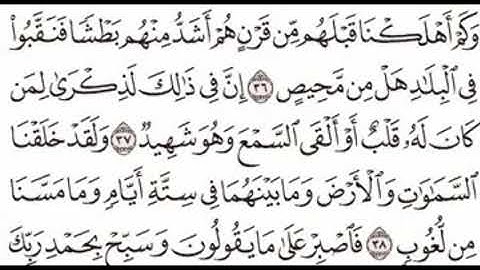 وَكَمْ أَهْلَكْنَا قَبْلَهُم مِّن قَرْنٍ هُمْ أَشَدُّ مِنْهُم بَطْشًا فَنَقَّبُوا۟
فِى ٱلْبِلَـٰدِ هَلْ مِن مَّحِيصٍ ٣٦ إِنَّ فِى ذَٰلِكَ لَذِكْرَىٰ لِمَن
كَانَ لَهُۥ قَلْبٌ أَوْ أَلْقَى ٱلسَّمْعَ وَهُوَ شَهِيدٌ ٣٧ وَلَقَدْ خَلَقْنَا
ٱلسَّمَـٰوَٰتِ وَٱلْأَرْضَ وَمَا بَيْنَهُمَا فِى سِتَّةِ أَيَّامٍ وَمَا مَسَّنَا
مِن لُّغُوبٍ ٣٨ فَٱصْبِرْ عَلَىٰ مَا يَقُولُونَ وَسَبِّحْ بِحَمْدِ رَبِّكَ